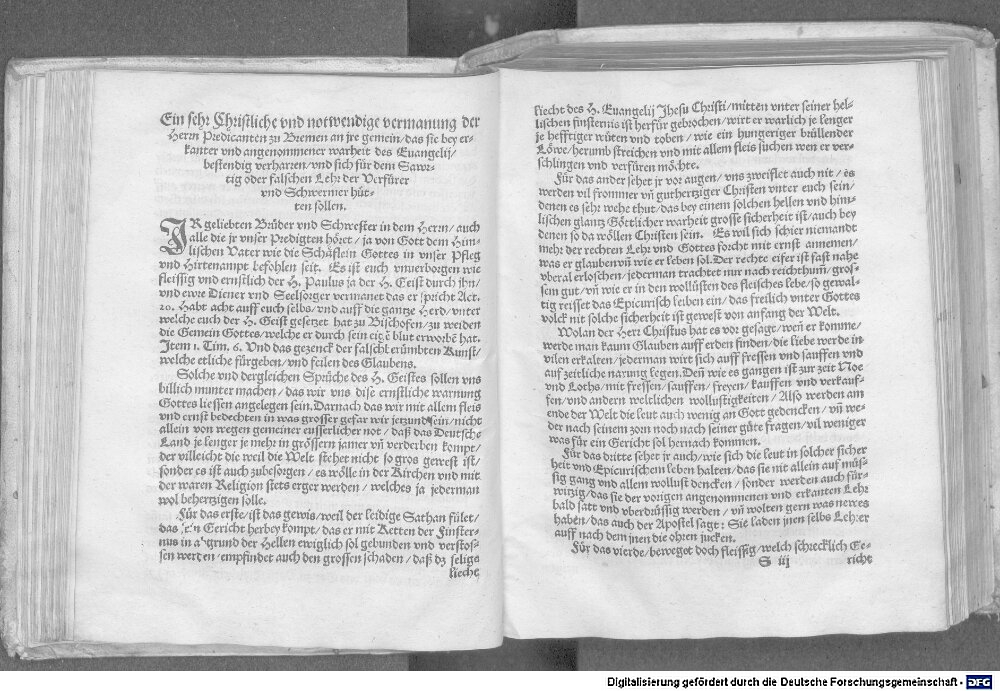 Ein sehr Christliche vnd notwendige vermanung der
Herrn Predicanten zu Bremen an jre gemein / das sie bey er-
kanter vnd angenommener warheit des Euangelij /
bestendig verharren / vnd sich für dem Sawr-
tig oder falschen Lehr der Verfürer
vnd Schwermer hüt-
ten sollen.
IR geliebten Brüder vnd Schwester in dem Herrn / auch
alle die jr vnser Predigten höret / ja von Gott dem Him-
lischen Vater wie die Schäflein Gottes in vnser Pfleg
vnd Hirtenampt befohlen seit. Es ist euch vnuerborgen wie
fleissig vnd ernstlich der H. Paulus ja der H. Geist durch jhn /
vnd ewre Diener vnd Seelsorger vermanet das er spricht Act.
20. Habt acht auff euch selbs / vnd auff die gantze Herd / vnter
welche euch der H. Geist gesetzet hat zu Bischofen / zu weiden
die Gemein Gottes / welche er durch sein eigē blut erworbē hat.
Item 1. Tim. 6. Vnd das gezenck der falschē erümbten Kunst /
welche etliche fürgeben / vnd feilen des Glaubens.
Solche vnd dergleichen Sprüche des H. Geistes sollen vns
billich munter machen / das wir vns dise ernstliche warnung
Gottes liessen angelegen sein. Darnach das wir mit allem fleis
vnd ernst bedechten in was grosser gefar wir jetzund sein / nicht
allein von wegen gemeiner eusserlicher not / daß das Deutsche
Land je lenger je mehr in grössern jamer vn̄ verderben kompt /
der villeicht die weil die Welt stehet nicht so gros gewest ist /
sonder es ist auch zubesorgen / es wölle in der Kirchen vnd mit
der waren Religion stets erger werden / welches ja jederman
wol behertzigen solle.
Für das erste / ist das gewis / weil der leidige Sathan fület /
das Gericht herbey kompt / das er mit Ketten der Finster-
nus in abgrund der Hellen ewiglich sol gebunden vnd verstos-
sen werden / empfindet auch den grossen schaden / daß dz selige
liecht
liecht des H. Euangelij Jhesu Christi / mitten vnter seiner hel-
lischen finsternis ist herfür gebrochen / wirt er warlich je lenger
je hefftiger wüten vnd toben / wie ein hungeriger brüllender
Löwe / herumb streichen vnd mit allem fleis suchen wen er ver-
schlingen vnd verfüren möchte.
Für das ander sehet jr vor augen / vns zweiflet auch nit / es
werden vil frommer vn̄ guthertziger Christen vnter euch sein /
denen es sehr wehe thut / das bey einem solchen hellen vnd him-
lischen glantz Göttlicher warheit grosse sicherheit ist / auch bey
denen so da wöllen Christen sein. Es wil sich schier niemandt
mehr der rechten Lehr vnd Gottes forcht mit ernst annemen /
was er glauben vn̄ wie er leben sol. Der rechte eifer ist fast nahe
vberal erloschen / jederman trachtet nur nach reichthum̄ / gros-
sem gut / vn̄ wie er in den wollüsten des fleisches lebe / so gewal-
tig reisset das Epicurisch leiben ein / das freilich vnter Gottes
volck nit solche sicherheit ist gewest von anfang der Welt.
Wolan der Herr Christus hat es vor gesagt / weñ er komme /
werde man kaum Glauben auff erden finden / die liebe werde in
vilen erkalten / jederman wirt sich auff fressen vnd sauffen vnd
auff zeitliche narung legen. Deñ wie es gangen ist zur zeit Noe
vnd Loths / mit fressen / sauffen / freyen / kauffen vnd verkauf-
fen / vnd andern weltlichen wollustigkeiten / Also werden am
ende der Welt die leut auch wenig an Gott gedencken / vn̄ we-
der nach seinem zorn noch nach seiner güte fragen / vil weniger
was für ein Gericht sol hernach kommen.
Für das dritte sehet jr auch / wie sich die leut in solcher sicher
heit vnd Epicurischem leben halten / das sie nit allein auf müs-
sig gang vnd allem wollust dencken / sonder werden auch für-
witzig / das sie der vorigen angenommenen vnd erkanten Lehr
bald satt vnd vberdrüssig werden / vn̄ wolten gern was newes
haben / das auch der Apostel sagt: Sie laden jnen selbs Lehrer
auff nach dem jnen die ohren jucken.
Für das vierde / beweget doch fleissig / welch schrecklich Ge-
S iij richt
Digitalisierung gefördert durch die Deutsche Forschungsgemeinschaft - DFG